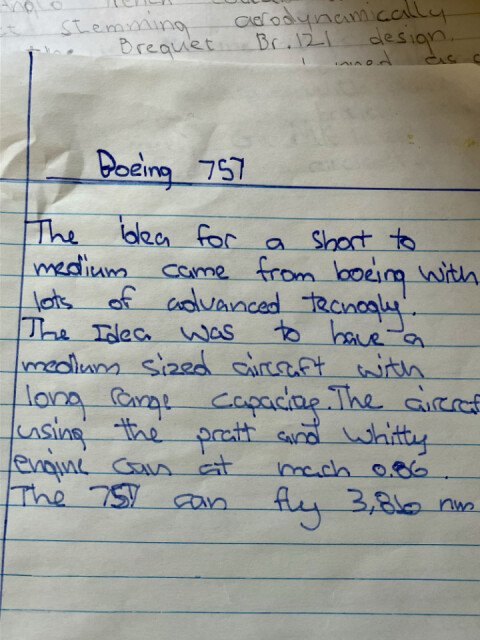 stemming aerodynamically
the Breguet Br.121 design.
Boeing 757
The idea for a short to
medium came from boeing with
lots of advanced tecnogly.
The Idea was to have a
medium sized aircraft with
long range capacity. The aircraf
using the pratt and whitty
engine can at mach 0.86.
The 757 can fly 3,860 nm